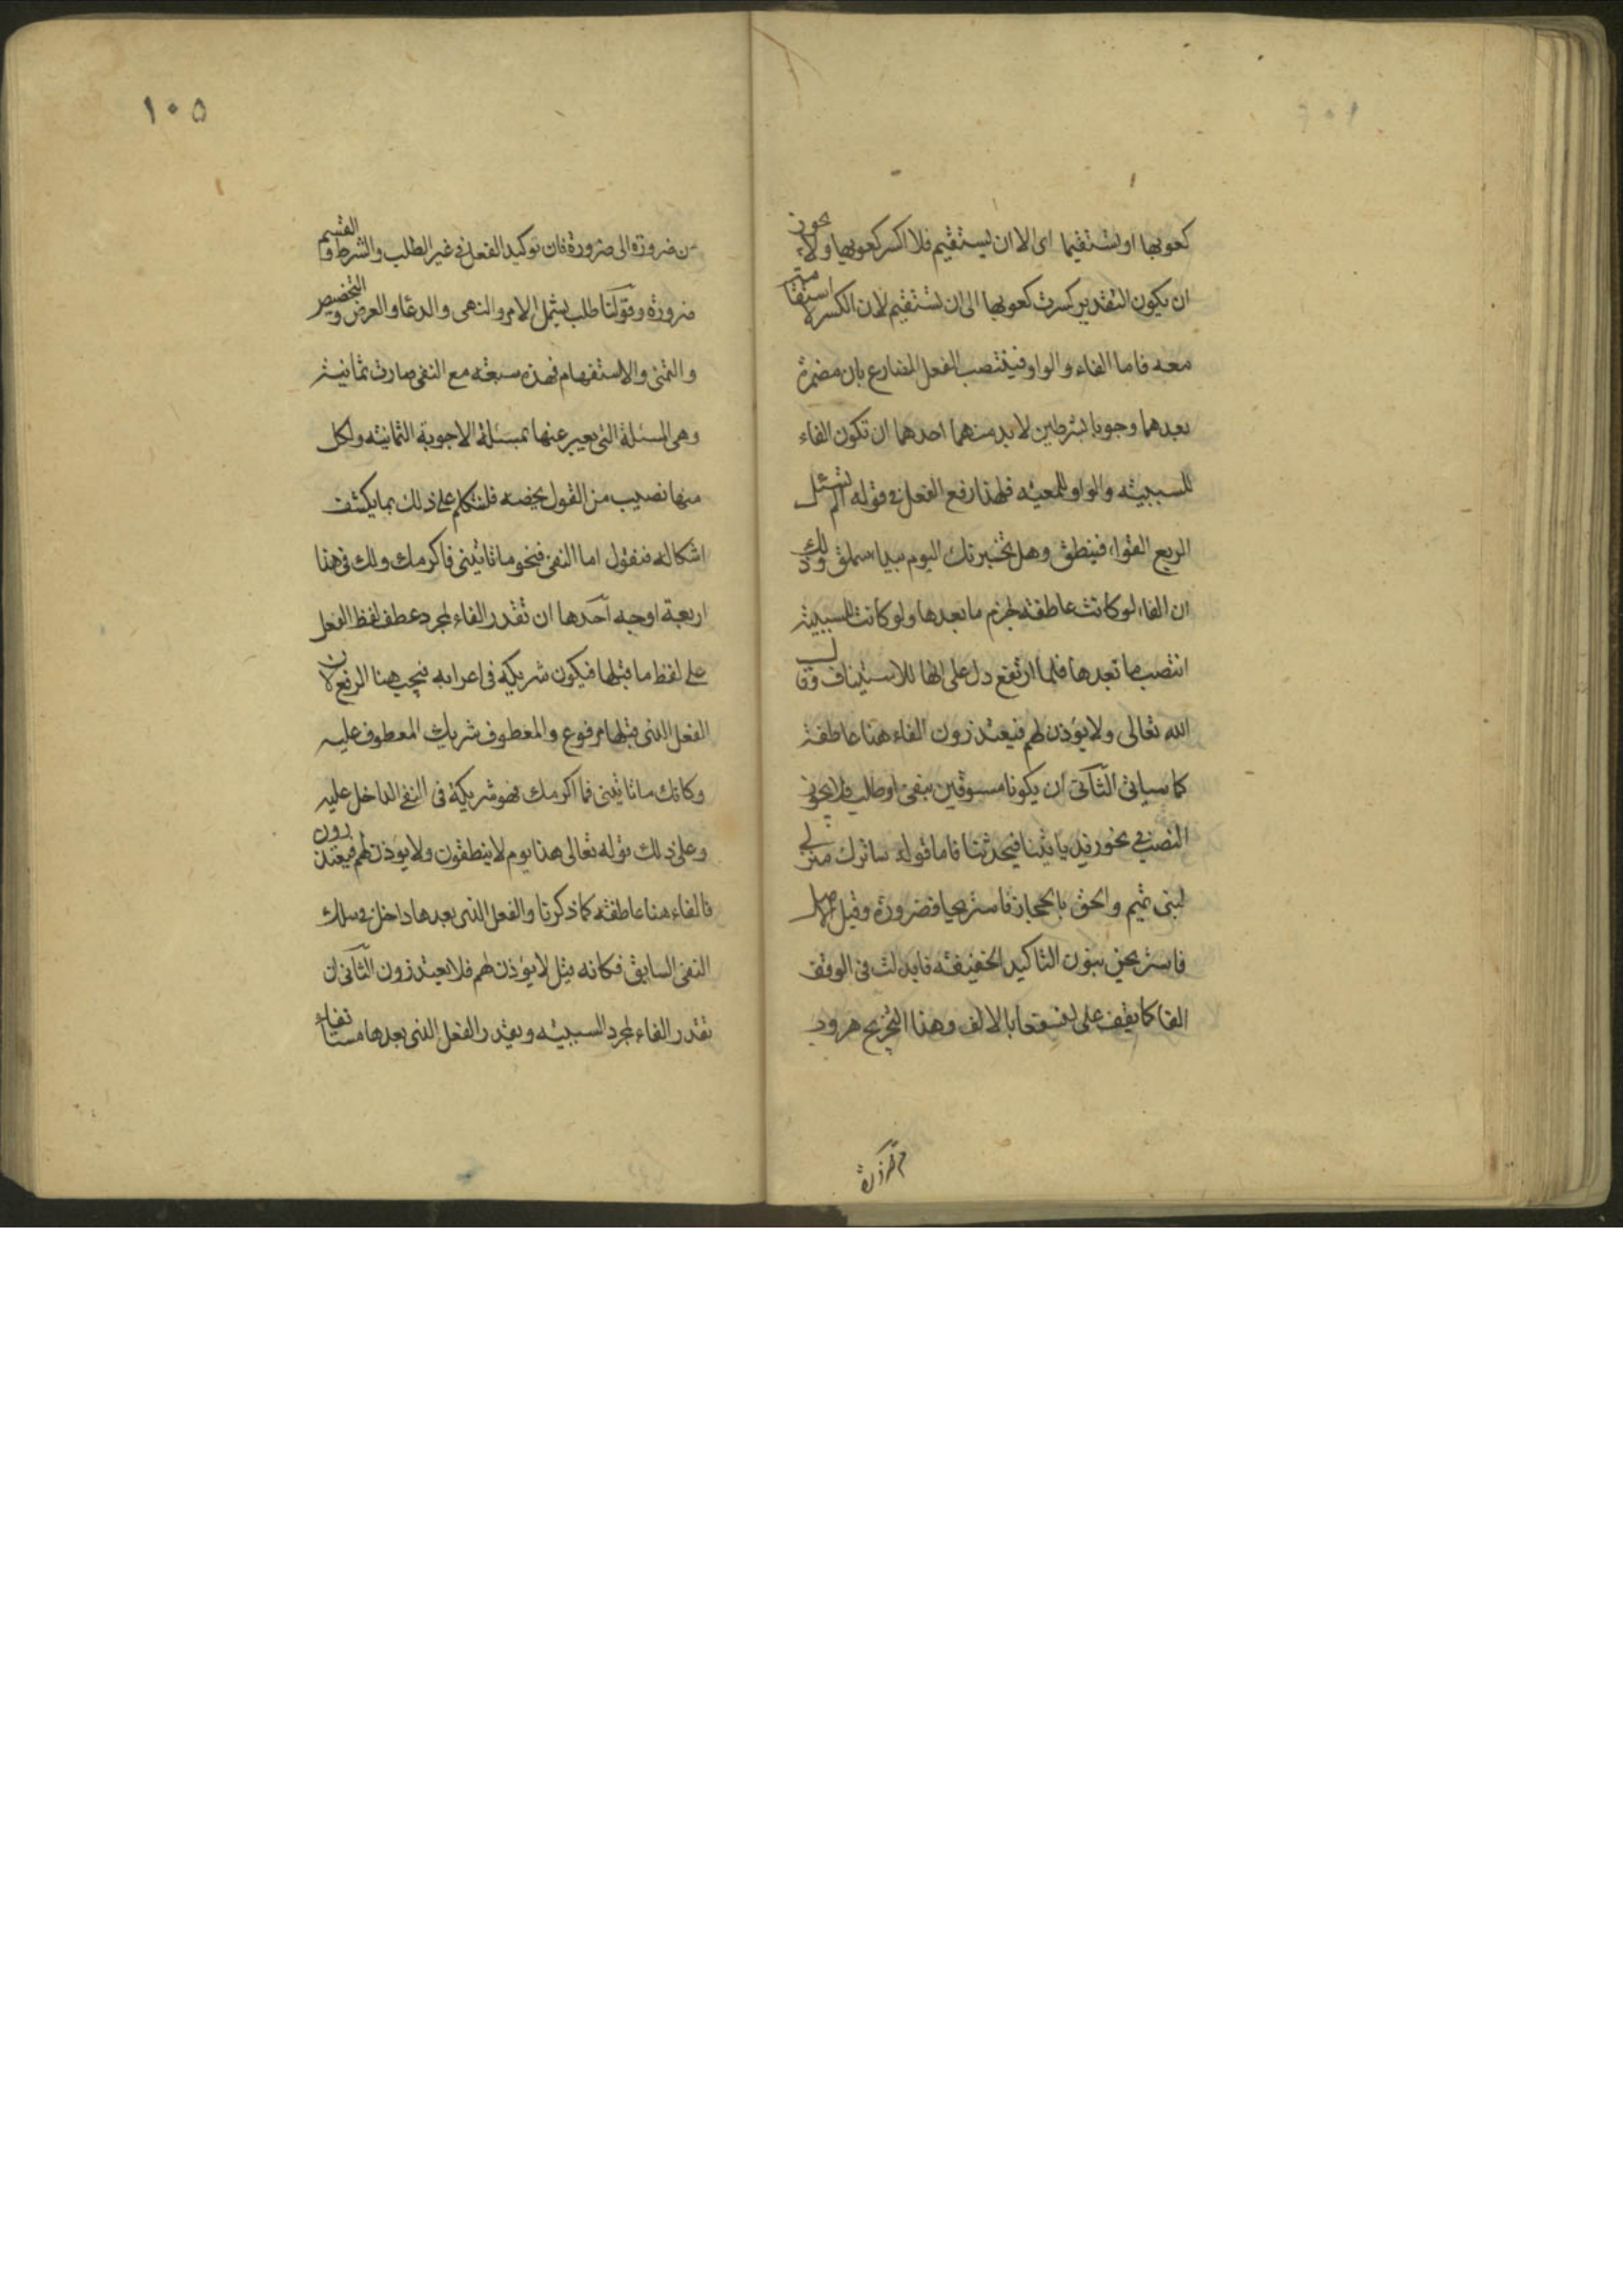 كعوبها او تستقيما اى الا ان يستقيم فلا اكسر كعوبها ولا يجوز
ان يكون التقدير كسرت كعوبها الى ان تستقيم لان الكسر لا استقامة
معه فاما الفاء والواو فينتصب الفعل المضارع بان مضمرة
بعدهما وجوبا بشرطين لا بد منهما احدهما ان تكون الفاء
للسببية والواو للمعية فلهذا رفع الفعل فى قوله الم تسئل
الربع القواء فينطق وهل تخبرنك اليوم بيداء سملق وذلك
ان الفاء لو كانت عاطفة لجزم ما بعدها ولو كانت للسببية
انتصب ما بعدها فلما ارتفع دل على انها للاستيناف وقال
الله تعالى ولا يؤذن لهم فيعتذرون الفاء هنا عاطفة
كما سياتى الثانى ان يكونا مسبوقين بنفى او طلب فلا يجوز
النصب فى نحو زيد ياتينا فيحدثنا فاما قوله ساترك منزلى
لبنى تميم والحق بالحجاز فاستريحا فضرورة وقيل اصله
فاستريحن بنون التاكيد الخفيفة فابدلت فى الوقف
الفا كما يقف على لنسفعا بالالف وهذا التخريج هروب
١٠٥
من ضرورة الى ضرورة فان توكيد الفعل فى غير الطلب والشرط والقسم
ضرورة وقولنا طلب يشمل الامر والنهى والدعا والعرض والتحضيض
والتمنى والاستفهام فهذه سبعة مع النفى صارت ثمانية
وهى المسئلة التى يعبر عنها بمسئلة الاجوبة الثمانية ولكل
منها نصيب من القول يخصه فلنتكلم على ذلك بما يكشف
اشكاله فنقول اما النفى فنحو ما تاتينى فاكرمك ولك فى هذا
اربعة اوجه احدها ان تقدر الفاء لمجرد عطف لفظ الفعل
على لفظ ما قبلها فيكون شريكه فى اعرابه فيجب هنا الرفع لان
الفعل الذى قبلها مرفوع والمعطوف شريك المعطوف عليه
وكانك ما تاتينى فما اكرمك فهو شريكه فى النفى الداخل عليه
وعلى ذلك قوله تعالى هذا يوم لا ينطقون ولا يؤذن لهم فيعتذرون
فالفاء هنا عاطفة كما ذكرنا والفعل الذى بعدها داخل فى سلك
النفى السابق فكانه قيل لا يؤذن لهم فلا يعتذرون الثانى ان
تقدر الفاء لمجرد السببية ويقدر الفعل الذى بعدها مستانفا